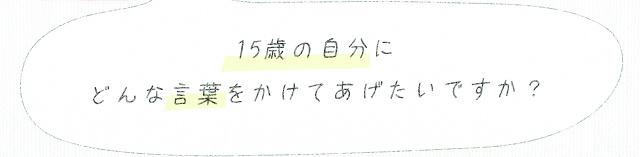 15歳の自分に
どんな言葉をかけてあげたいですか？